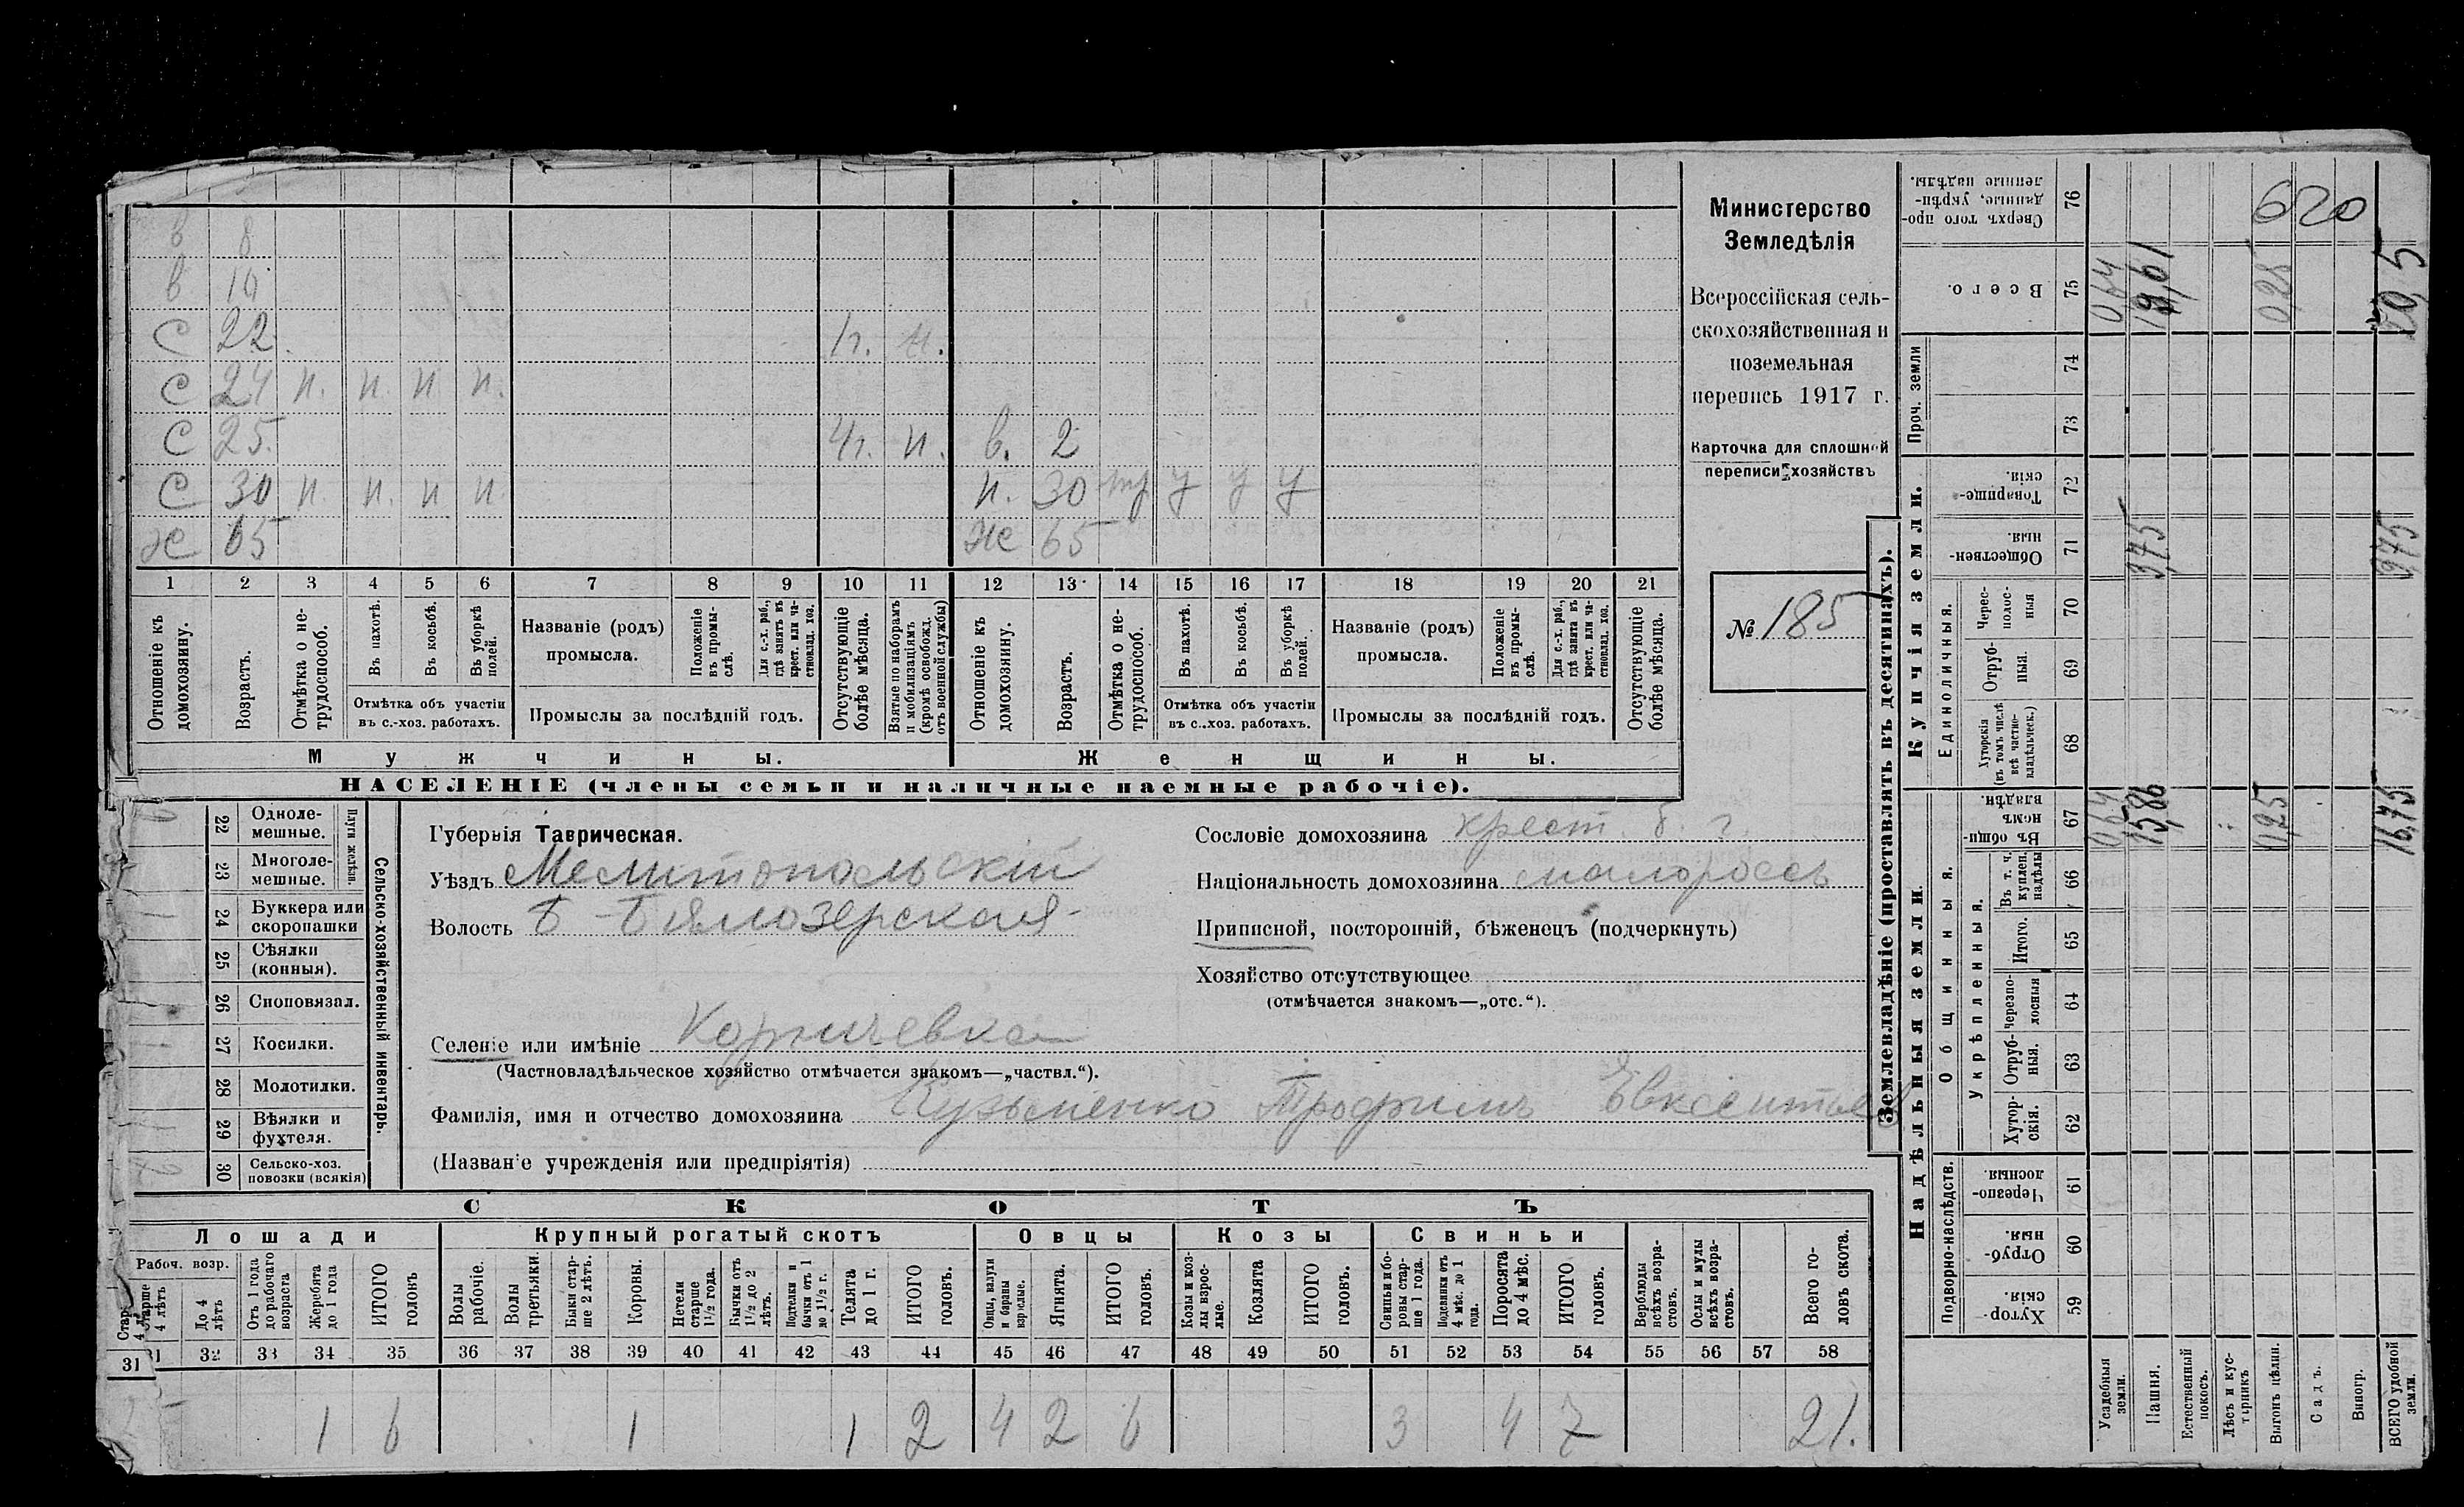 в 8
в 10
с 22. 1г. н.
с 24 п. п. п п.
с 25. 4г. п. в. 2
с 30 п. п. п п п. 30 у у у
ж 65 ж 65
1 2 3 4 5 6 7 8 9 10 11 12 13 14 15 16 17 18 19 20 21
Отношеніе къ домохозяину.
Возрастъ.
Отмѣтка о нетрудоспособ.
Въ пахотѣ.
Въ косьбѣ.
Въ уборкѣ полей.
Отмѣтка объ участіи въ с.-хоз. работахъ.
Названіе (родъ) промысла.
Положеніе въ промыслѣ.
Для с.-х. раб., гдѣ занятъ въ крест. или частновлад. хоз.
Промыслы за послѣдній годъ.
Отсутствующіе болѣе мѣсяца.
Взятые по наборамъ и мобилизаціямъ (кромѣ освобожд. отъ военной службы)
Отношеніе къ домохозяину.
Возрастъ.
Отмѣтка о нетрудоспособ.
Въ пахотѣ.
Въ косьбѣ.
Въ уборкѣ полей.
Отмѣтка объ участіи въ с.-хоз. работахъ.
Названіе (родъ) промысла.
Положеніе въ промыслѣ.
Для с.-х. раб., гдѣ занята въ крест. или частновлад. хоз.
Промыслы за послѣдній годъ.
Отсутствующіе болѣе мѣсяца.
Мужчины. Женщины.
НАСЕЛЕНІЕ (члены семьи и наличные наемные рабочіе).
Министерство
Земледѣлія
Всероссійская сель-
скохозяйственная и
поземельная
перепись 1917 г.
Карточка для сплошной
переписи хозяйствъ
№ 185
Сельско-хозяйственный инвентарь.
Плуги желѣзн.
22 Одноле-
мешные.
23 Многоле-
мешные.
24 Буккера или
скоропашки
25 Сѣялки
(конныя).
26 Сноповязал.
27 Косилки.
28 Молотилки.
29 Вѣялки и
фухтеля.
30 Сельско-хоз.
повозки (всякія)
Губернія Таврическая.
Уѣздъ Мелитопольскій
Волость Б-Бѣлозерская
Сословіе домохозяина крест. б. г.
Національность домохозяина малороссъ
Приписной, посторонній, бѣженецъ (подчеркнуть)
Хозяйство отсутствующее
(отмѣчается знакомъ—„отс.“).
Селеніе или имѣніе Корничевка
(Частновладѣльческое хозяйство отмѣчается знакомъ—„частвл.“).
Фамилія, имя и отчество домохозяина Кузьменко Трофимъ
(Названіе учрежденія или предпріятія)
СКОТЪ
Лошади Крупный рогатый скотъ Овцы Козы Свиньи
Рабоч. возр.
Старше 4 лѣтъ
До 4 лѣтъ
Отъ 1 года до рабочаго возраста
Жеребята до 1 года
ИТОГО головъ
Волы рабочіе.
Волы третьяки.
Быки старше 2 лѣтъ.
Коровы.
Нетели старше 1½ года.
Бычки отъ 1½ до 2 лѣтъ.
Подтелки и бычки отъ 1 до 1½ г.
Телята до 1 г.
ИТОГО головъ.
Овцы, валухи и бараны взрослые.
Ягнята.
ИТОГО головъ.
Козы и козлы взрослые.
Козлята
ИТОГО головъ.
Свиньи и боровы старше 1 года.
Подсвинки отъ 4 мѣс. до 1 года.
Поросята до 4 мѣс.
ИТОГО головъ.
Верблюды всѣхъ возрастовъ.
Ослы и мулы всѣхъ возрастовъ.
Всего головъ скота.
31 32 33 34 35 36 37 38 39 40 41 42 43 44 45 46 47 48 49 50 51 52 53 54 55 56 57 58
1 6 1 1 2 4 2 6 3 4 7 21.
Землевладѣніе (проставлять въ десятинахъ).
Надѣльныя земли. Купчія земли.
Подворно-наслѣдств.
Общинныя.
Укрѣпленныя.
Единоличныя.
Проч. земли
76 Сверхъ того проданные, укрѣпленные надѣлы.
75 Всего.
74
73
72 Товарищескія.
71 Общественныя.
70 Чересполосныя
69 Отрубныя.
68 Хуторскія (въ томъ числѣ всѣ частновладѣльческ.)
67 Въ общинномъ владѣн.
66 Въ т. ч. куплен. надѣлы
65 Итого.
64 черезполосныя
63 Отрубныя.
62 Хуторскія.
61 Черезполосныя
60 Отрубныя.
59 Хуторскія
Усадебныя земли.
Пашня.
Естественный покосъ.
Лѣсъ и кустарникъ
Выгонъ цѣлин.
Садъ.
Виногр.
ВСЕГО удобной земли.
620
064 19,61 20,5
3,75 3,75
064 15,86 0,25 16,75